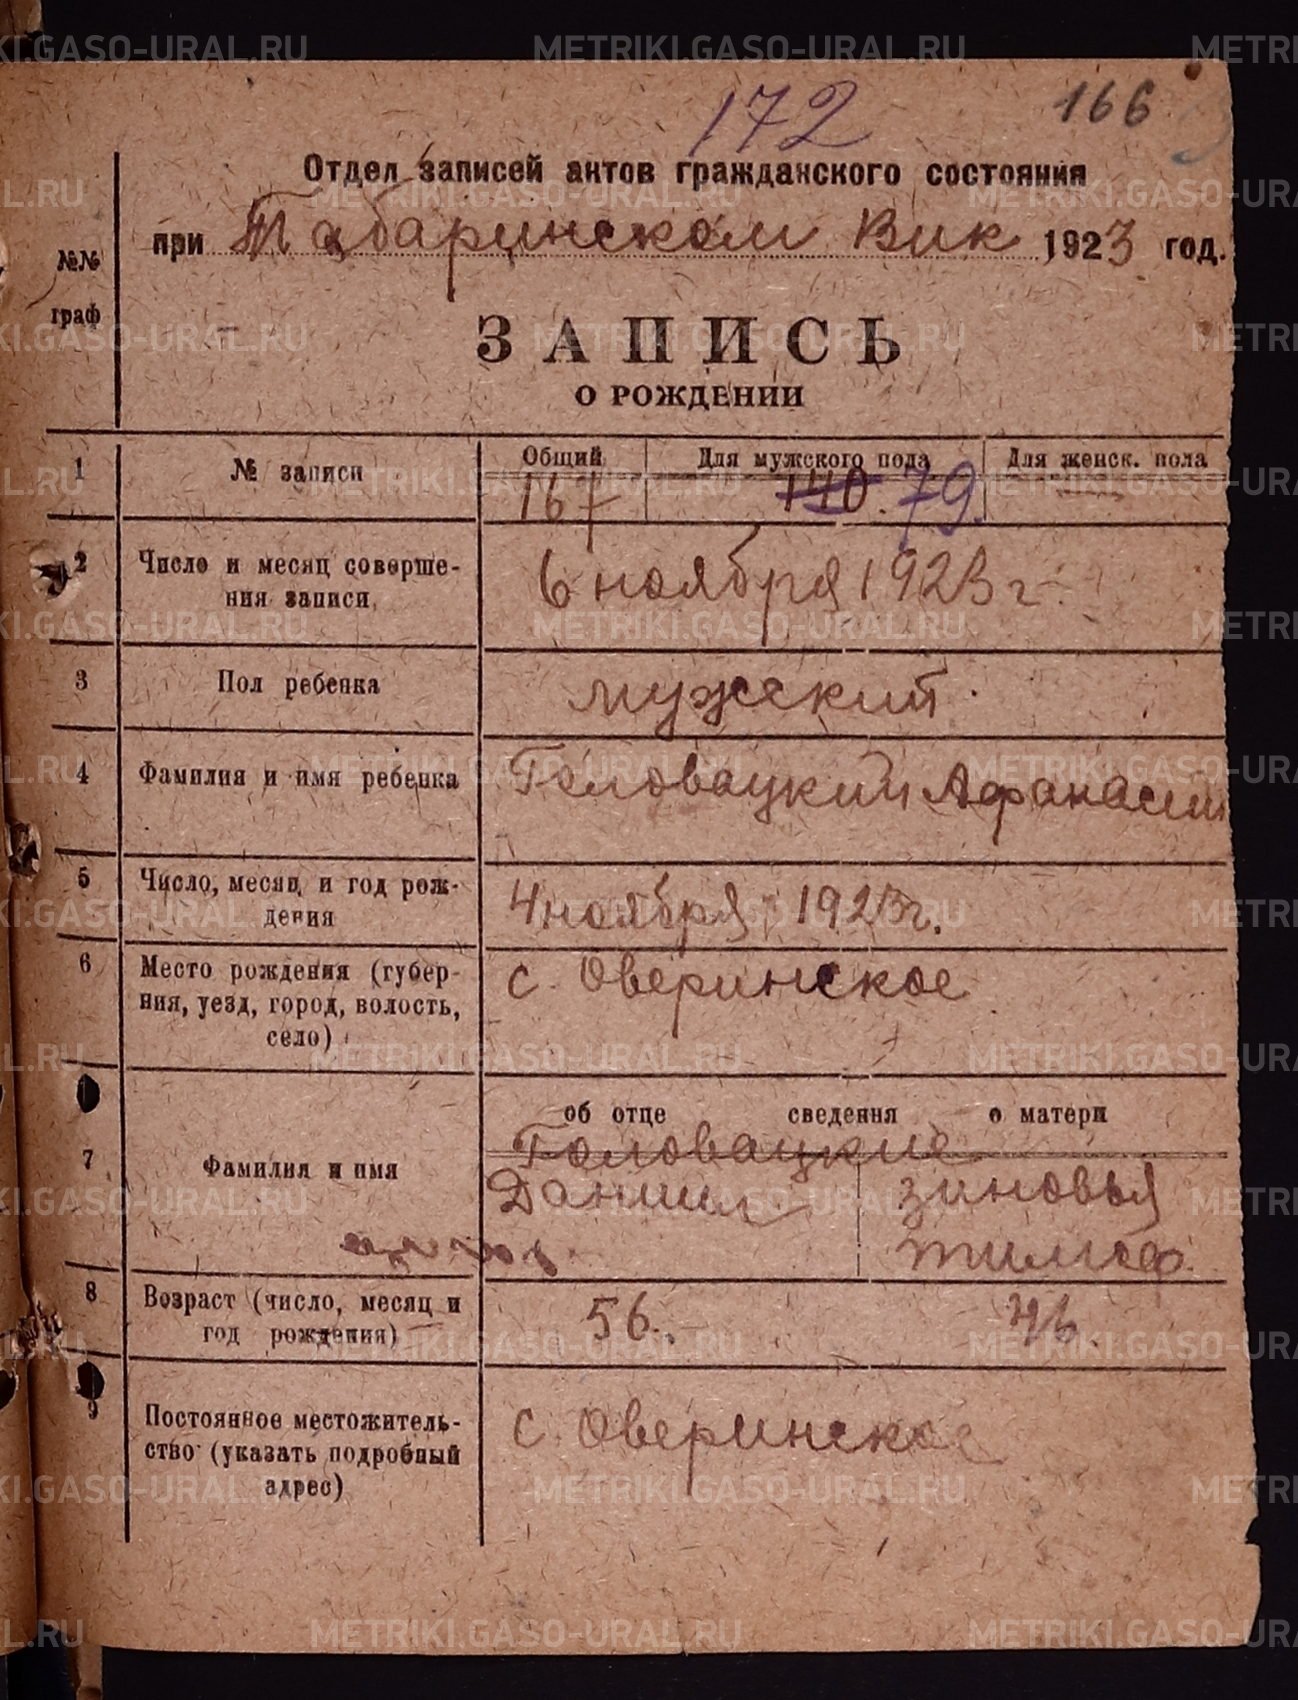 172
166
Отдел записей актов гражданского состояния
№№ граф
при Табаринском Вик 1923 год.
ЗАПИСЬ
О РОЖДЕНИИ
1 № записи Общий Для мужского пола Для женск. пола
167 140. 79.
2 Число и месяц соверше-
ния записи
6 ноября 1923 г.
3 Пол ребенка мужский.
4 Фамилия и имя ребенка Головацкий Афанасий
5 Число, месяц и год рож-
дения
4 ноября 1923 г.
6 Место рождения (губер-
ния, уезд, город, волость,
село)
с. Оверинское
об отце сведения о матери
7 Фамилия и имя
Головацкие
Даниил Зиновья
8 Возраст (число, месяц и
год рождения)
56. 46
9 Постоянное местожитель-
ство (указать подробный
адрес)
с. Оверинское
METRIKI.GASO-URAL.RU